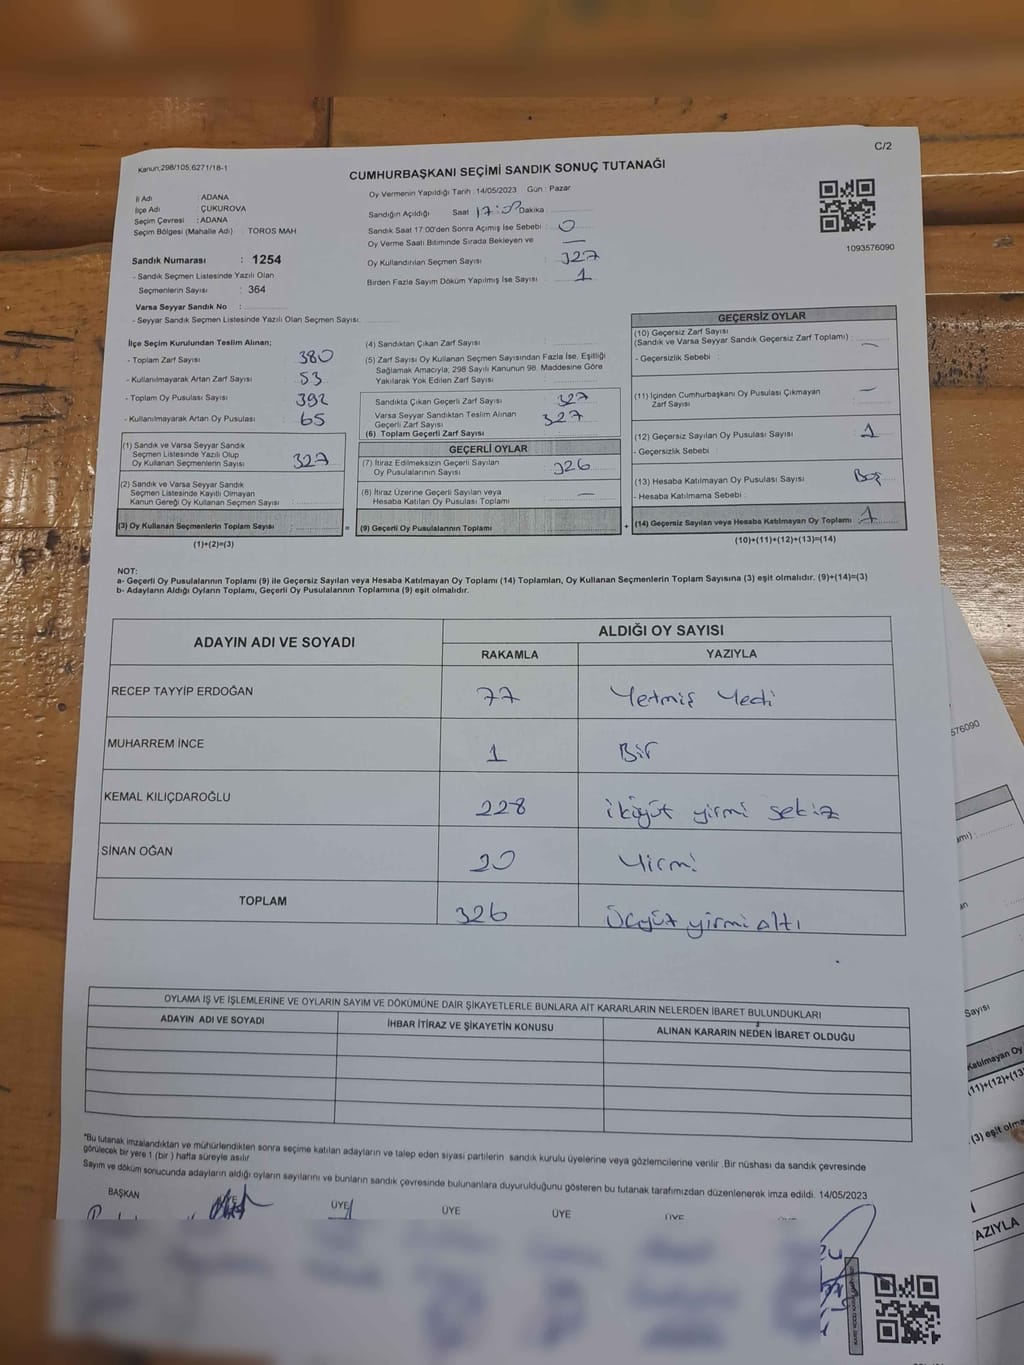 C/2
Kanun,298/105,6271/18-1
CUMHURBAŞKANI SEÇİMİ SANDIK SONUÇ TUTANAĞI
Oy Vermenin Yapıldığı Tarih : 14/05/2023 Gün : Pazar
İl Adı : ADANA
İlçe Adı : ÇUKUROVA
Seçim Çevresi : ADANA
Seçim Bölgesi (Mahalle Adı) : TOROS MAH
Sandığın Açıldığı Saat 17: Dakika
Sandık Saat 17:00'den Sonra Açımış İse Sebebi : 0
Oy Verme Saati Bitiminde Sırada Bekleyen ve —
Oy Kullandırılan Seçmen Sayısı : 327
Birden Fazla Sayım Döküm Yapılmış İse Sayısı : 1
1093576090
Sandık Numarası : 1254
- Sandık Seçmen Listesinde Yazılı Olan
Seçmenlerin Sayısı : 364
Varsa Seyyar Sandık No :
- Seyyar Sandık Seçmen Listesinde Yazılı Olan Seçmen Sayısı:
İlçe Seçim Kurulundan Teslim Alınan;
- Toplam Zarf Sayısı : 380
- Kullanılmayarak Artan Zarf Sayısı : 53
- Toplam Oy Pusulası Sayısı : 392
- Kullanılmayarak Artan Oy Pusulası : 65
(1) Sandık ve Varsa Seyyar Sandık
Seçmen Listesinde Yazılı Olup
Oy Kullanan Seçmenlerin Sayısı : 327
(2) Sandık ve Varsa Seyyar Sandık
Seçmen Listesinde Kayıtlı Olmayan
Kanun Gereği Oy Kullanan Seçmen Sayısı :
(3) Oy Kullanan Seçmenlerin Toplam Sayısı :
(1)+(2)=(3)
(4) Sandıktan Çıkan Zarf Sayısı :
(5) Zarf Sayısı Oy Kullanan Seçmen Sayısından Fazla İse, Eşitliği
Sağlamak Amacıyla, 298 Sayılı Kanunun 98. Maddesine Göre
Yakılarak Yok Edilen Zarf Sayısı :
Sandıkta Çıkan Geçerli Zarf Sayısı : 327
Varsa Seyyar Sandıktan Teslim Alınan
Geçerli Zarf Sayısı : 327
(6) Toplam Geçerli Zarf Sayısı :
GEÇERLİ OYLAR
(7) İtiraz Edilmeksizin Geçerli Sayılan
Oy Pusulalarının Sayısı : 326
(8) İtiraz Üzerine Geçerli Sayılan veya
Hesaba Katılan Oy Pusulası Toplamı : —
= (9) Geçerli Oy Pusulalarının Toplamı :
GEÇERSİZ OYLAR
(10) Geçersiz Zarf Sayısı
(Sandık ve Varsa Seyyar Sandık Geçersiz Zarf Toplamı) : —
- Geçersizlik Sebebi :
(11) İçinden Cumhurbaşkanı Oy Pusulası Çıkmayan —
Zarf Sayısı
(12) Geçersiz Sayılan Oy Pusulası Sayısı : 1
- Geçersizlik Sebebi :
(13) Hesaba Katılmayan Oy Pusulası Sayısı : Boş
- Hesaba Katılmama Sebebi :
+ (14) Geçersiz Sayılan veya Hesaba Katılmayan Oy Toplamı : 1
(10)+(11)+(12)+(13)=(14)
NOT:
a- Geçerli Oy Pusulalarının Toplamı (9) ile Geçersiz Sayılan veya Hesaba Katılmayan Oy Toplamı (14) Toplamları, Oy Kullanan Seçmenlerin Toplam Sayısına (3) eşit olmalıdır. (9)+(14)=(3)
b- Adayların Aldığı Oyların Toplamı, Geçerli Oy Pusulalarının Toplamına (9) eşit olmalıdır.
ADAYIN ADI VE SOYADI
ALDIĞI OY SAYISI
RAKAMLA YAZIYLA
RECEP TAYYİP ERDOĞAN 77 Yetmiş Yedi
MUHARREM İNCE 1 Bir
KEMAL KILIÇDAROĞLU 228 ikiyüz yirmi sekiz
SİNAN OĞAN 20 Yirmi
TOPLAM 326 Üçyüz yirmi altı
OYLAMA İŞ VE İŞLEMLERİNE VE OYLARIN SAYIM VE DÖKÜMÜNE DAİR ŞİKAYETLERLE BUNLARA AİT KARARLARIN NELERDEN İBARET BULUNDUKLARI
ADAYIN ADI VE SOYADI İHBAR İTİRAZ VE ŞİKAYETİN KONUSU ALINAN KARARIN NEDEN İBARET OLDUĞU
*Bu tutanak imzalandıktan ve mühürlendikten sonra seçime katılan adayların ve talep eden siyasi partilerin sandık kurulu üyelerine veya gözlemcilerine verilir .Bir nüshası da sandık çevresinde
görülecek bir yere 1 (bir ) hafta süreyle asılır
Sayım ve döküm sonucunda adayların aldığı oyların sayılarını ve bunların sandık çevresinde bulunanlara duyurulduğunu gösteren bu tutanak tarafımızdan düzenlenerek imza edildi. 14/05/2023
BAŞKAN ÜYE ÜYE ÜYE ÜYE ÜYE
576090
Sayısı
Katılmayan Oy
(11)+(12)+(13
(3) eşit olma
AZIYLA